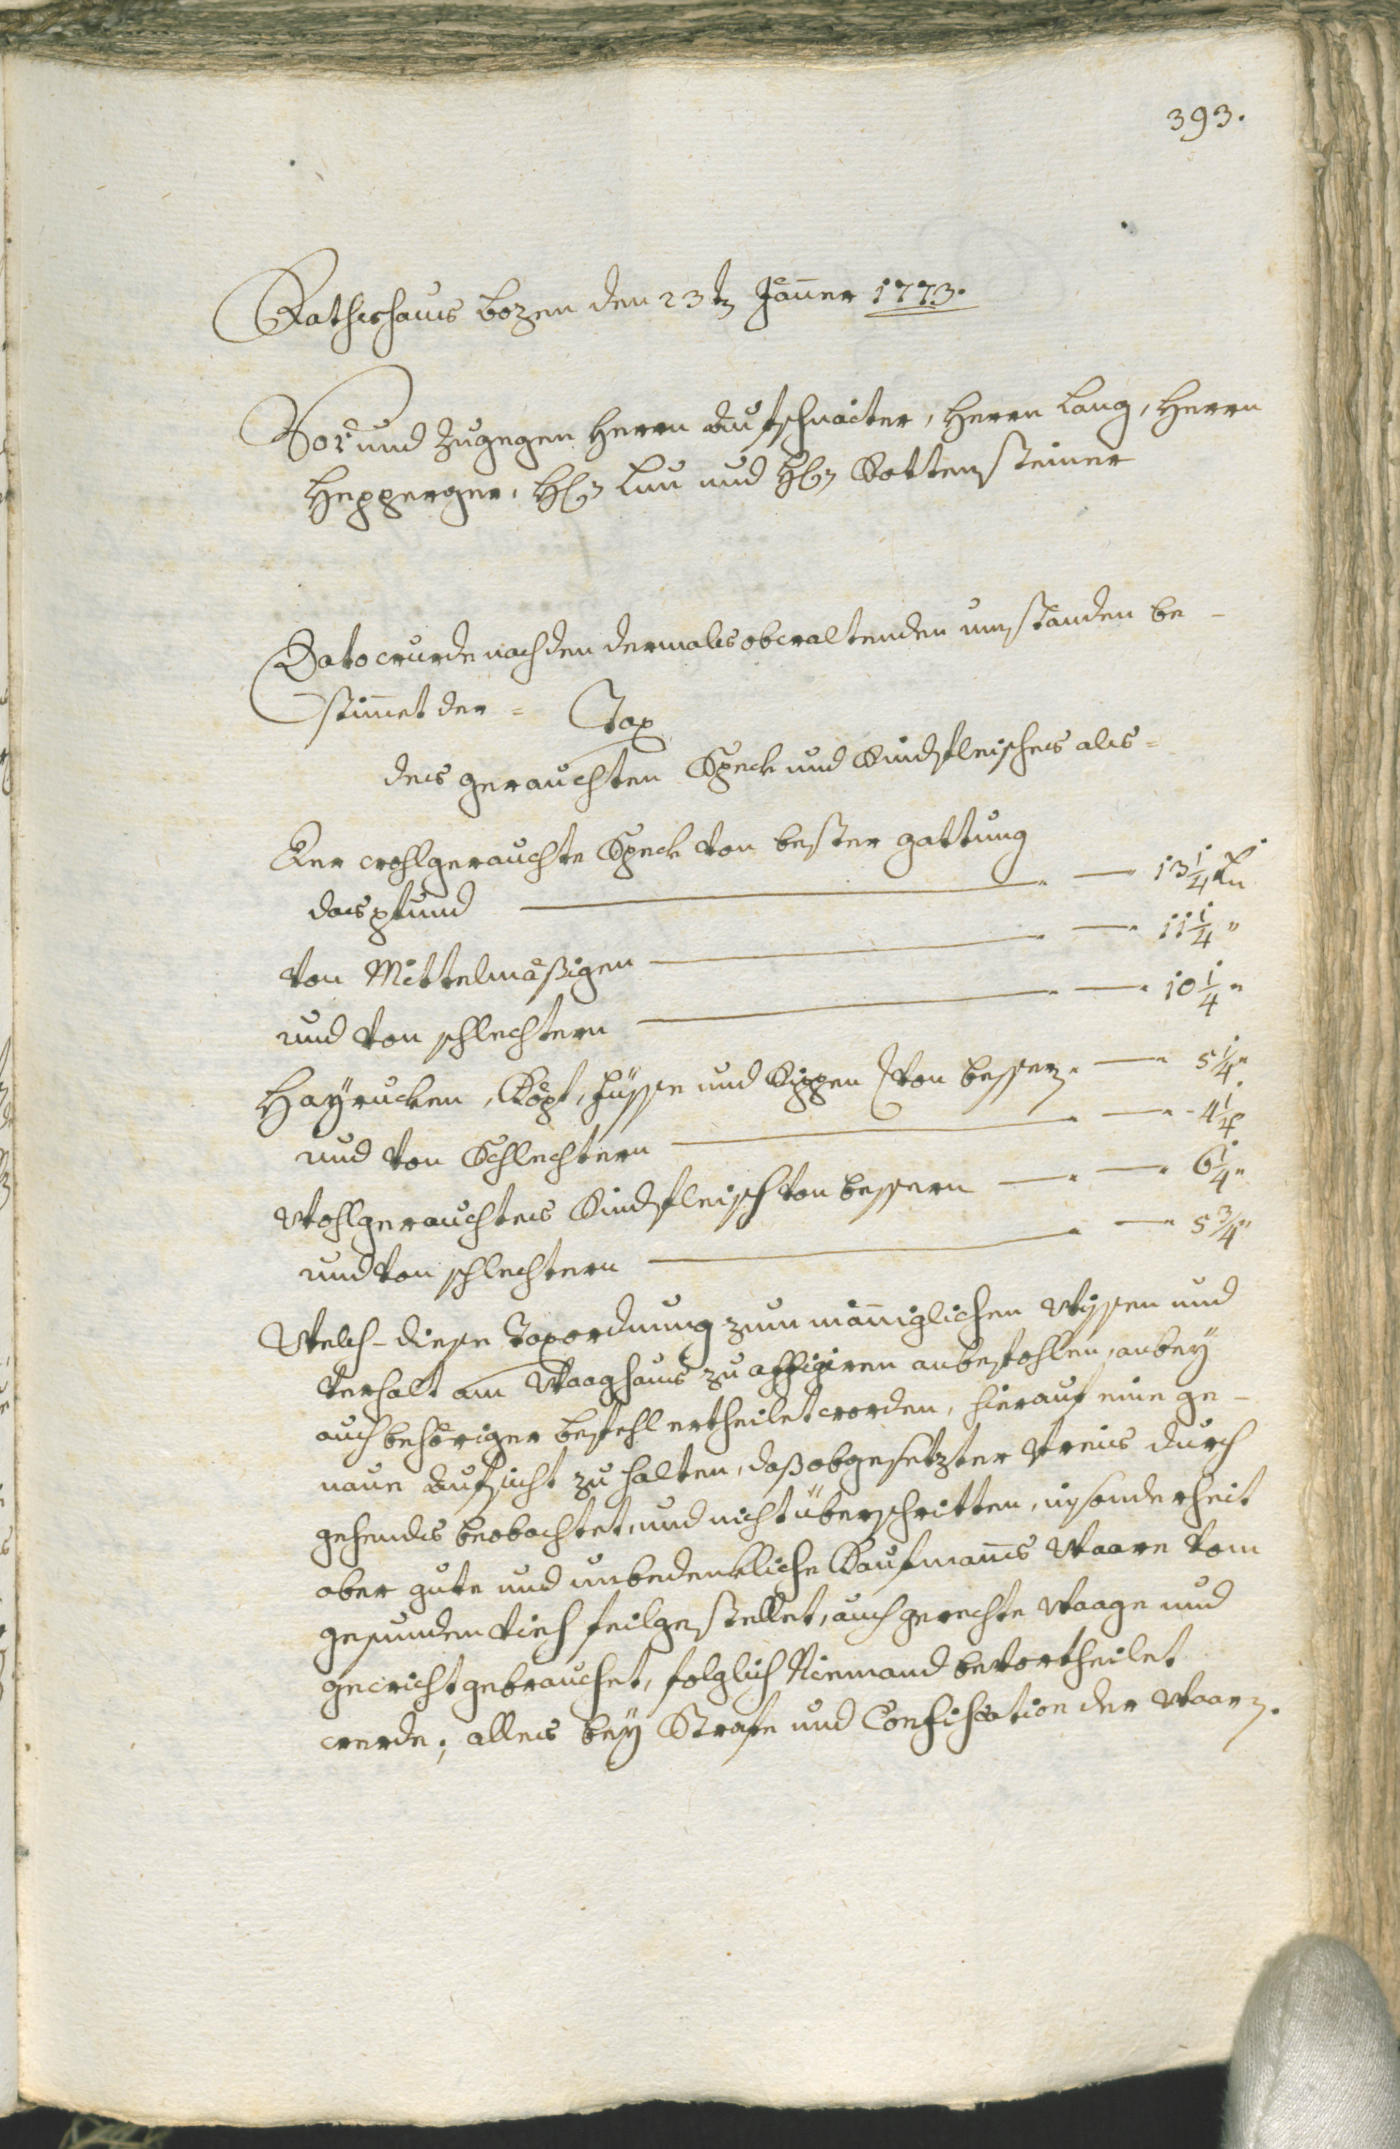 393.
Rathshaus Bozen den 23tn Jäner 1773.
Vor und zugegen Herrn Aufschnaiter, Herrn Lang, Herrn
Hepperger, H. Luu und H. Rottensteiner
Dato wurde nach den dermals obwaltenden umständen be-
stimet der = Tax
des gerauchten Speck und Rindfleisches als =
Der wohlgerauchte Speck von bester gattung
das pfund 13 1/4 Kr
von Mittelmäßigen 11 1/4 "
und von schlechtern 10 1/4 "
Hayrucken, Köpf, Füsse und Rippen von bessern 5 1/4 "
und von Schlechtern 4 1/4
Wohlgerauchtes Rindfleisch von bessern 6 1/4 "
und von schlechtern 5 3/4 "
Welch-diese Taxordnung zum mäniglichen Wissen und
Verhalt am Waaghaus zu affigiren anbefohlen, anbey
auch behöriger befehl ertheilet worden, hierauf eine ge-
naue Aufsicht zu halten, daß obgesetzter Preis durch
gehends beobachtet, und nicht überschritten, insonderheit
aber gute und unbedenkliche Kaufmans Waare vom
gesunden Vieh feilgestellet, auch gerechte Waage und
gewicht gebrauchet, folglich Niemand bevortheilet
werde; alles bey Strafe und Confiscation der Waarn.